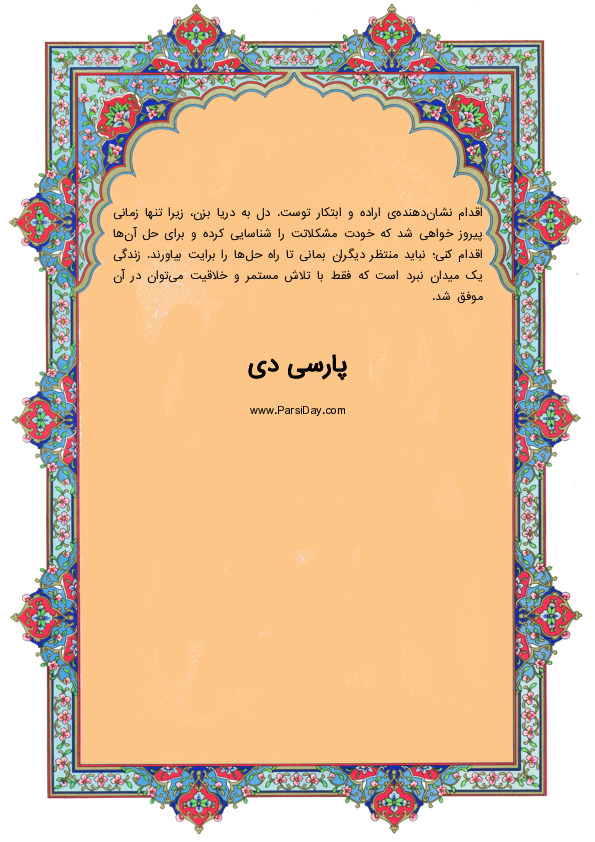 اقدام نشان‌دهنده‌ی اراده و ابتکار توست. دل به دریا بزن، زیرا تنها زمانی
پیروز خواهی شد که خودت مشکلاتت را شناسایی کرده و برای حل آن‌ها
اقدام کنی؛ نباید منتظر دیگران بمانی تا راه حل‌ها را برایت بیاورند. زندگی
یک میدان نبرد است که فقط با تلاش مستمر و خلاقیت می‌توان در آن
موفق شد.
پارسی دی
www.ParsiDay.com